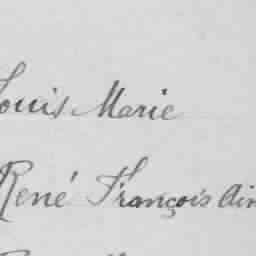 Louis Marie
René François